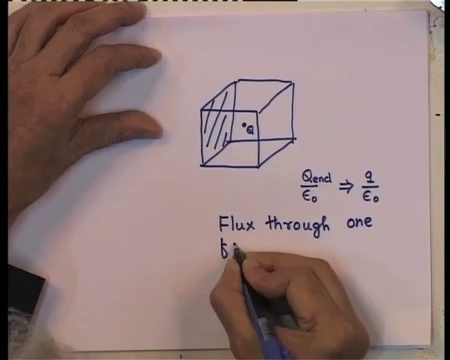 Q
Qencl/ε₀ ⇒ q/ε₀
Flux through one